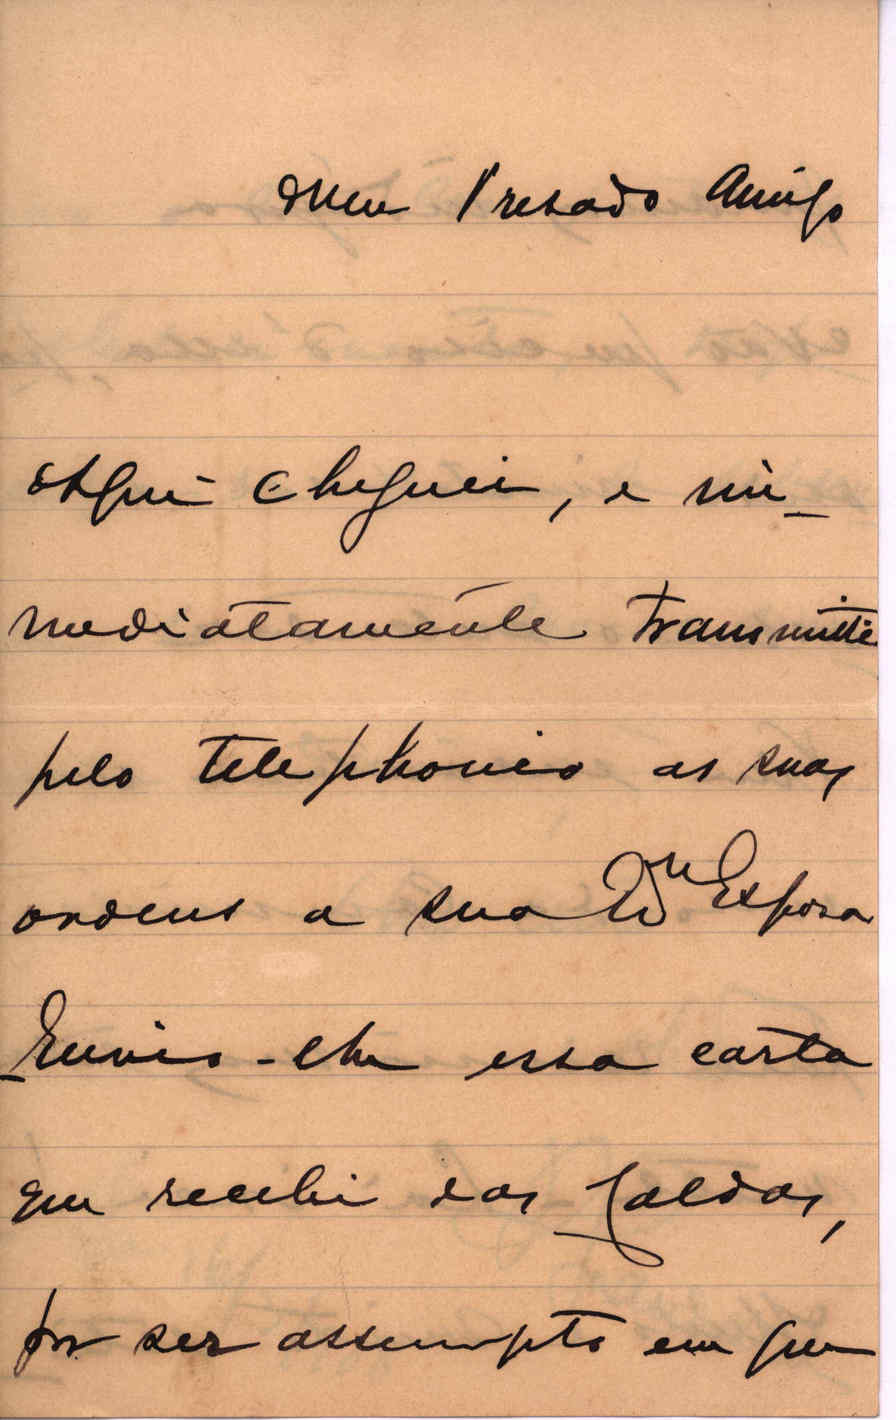 Meu Presado Amigo
Aqui cheguei, e im-
mediatamente transmitti
pelo telephonio as suas
ordens a sua Dn Espora
Envio-lhe essa carta
que recebi das Caldas,
por ser assumpto em que